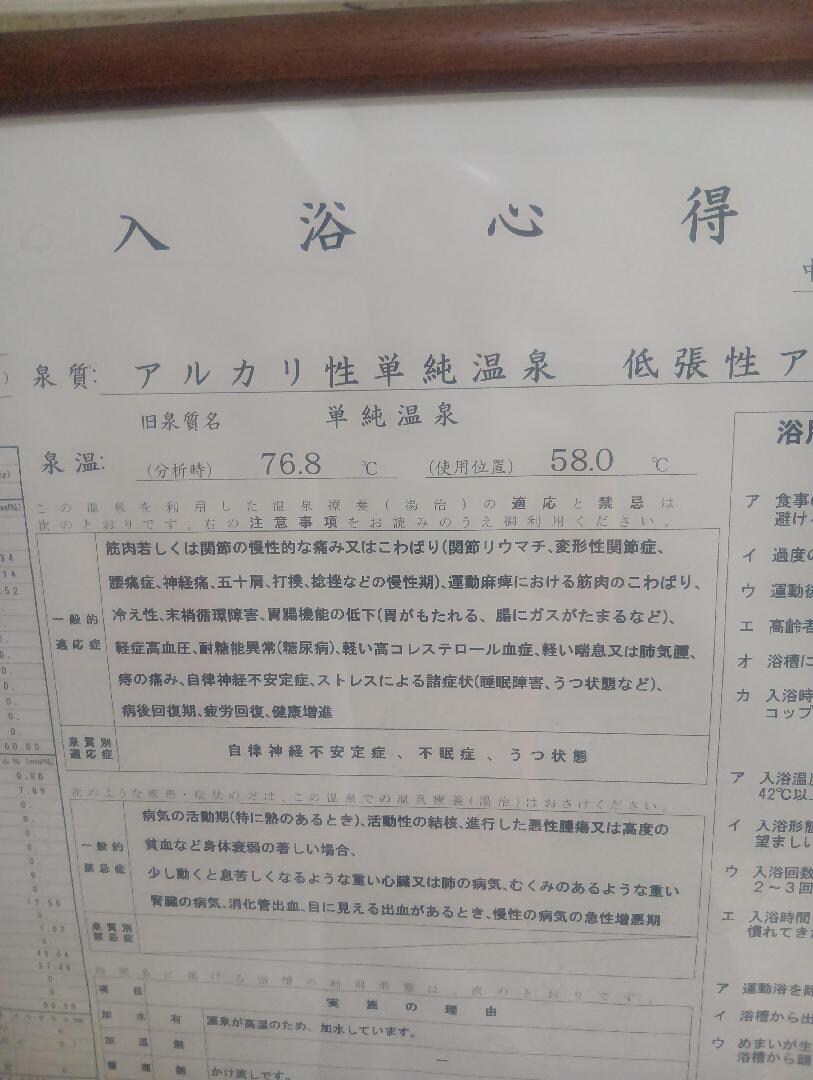 入浴心得
泉質: アルカリ性単純温泉 低張性ア
旧泉質名 単純温泉
泉温: (分析時) 76.8 ℃ (使用位置) 58.0 ℃
この温泉を利用した温泉療養(湯治)の適応と禁忌は
次のとおりです。右の注意事項をお読みのうえ御利用ください。
一般的
適応症
筋肉若しくは関節の慢性的な痛み又はこわばり(関節リウマチ、変形性関節症、
腰痛症、神経痛、五十肩、打撲、捻挫などの慢性期)、運動麻痺における筋肉のこわばり、
冷え性、末梢循環障害、胃腸機能の低下(胃がもたれる、腸にガスがたまるなど)、
軽症高血圧、耐糖能異常(糖尿病)、軽い高コレステロール血症、軽い喘息又は肺気腫、
痔の痛み、自律神経不安定症、ストレスによる諸症状(睡眠障害、うつ状態など)、
病後回復期、疲労回復、健康増進
泉質別
適応症
自律神経不安定症、不眠症、うつ状態
次のような疾患・症状の方は、この温泉での温泉療養(湯治)はおさけください。
一般的
禁忌症
病気の活動期(特に熱のあるとき)、活動性の結核、進行した悪性腫瘍又は高度の
貧血など身体衰弱の著しい場合、
少し動くと息苦しくなるような重い心臓又は肺の病気、むくみのあるような重い
腎臓の病気、消化管出血、目に見える出血があるとき、慢性の病気の急性増悪期
泉質別
禁忌症
浴室名に掲げる浴槽の利用形態は、次のとおりです。
項目 実施の理由
加水 有 源泉が高温のため、加水しています。
加温 無 ―
循環 無 かけ流しです。
浴用
ア 食事の
避け
イ 過度の
ウ 運動後
エ 高齢者
オ 浴槽に
カ 入浴時
コップ
ア 入浴温度
42℃以
イ 入浴形態
望ましい
ウ 入浴回数
2～3回
エ 入浴時間
慣れてき
ア 運動浴を除
イ 浴槽から出
ウ めまいが生
浴槽から頭